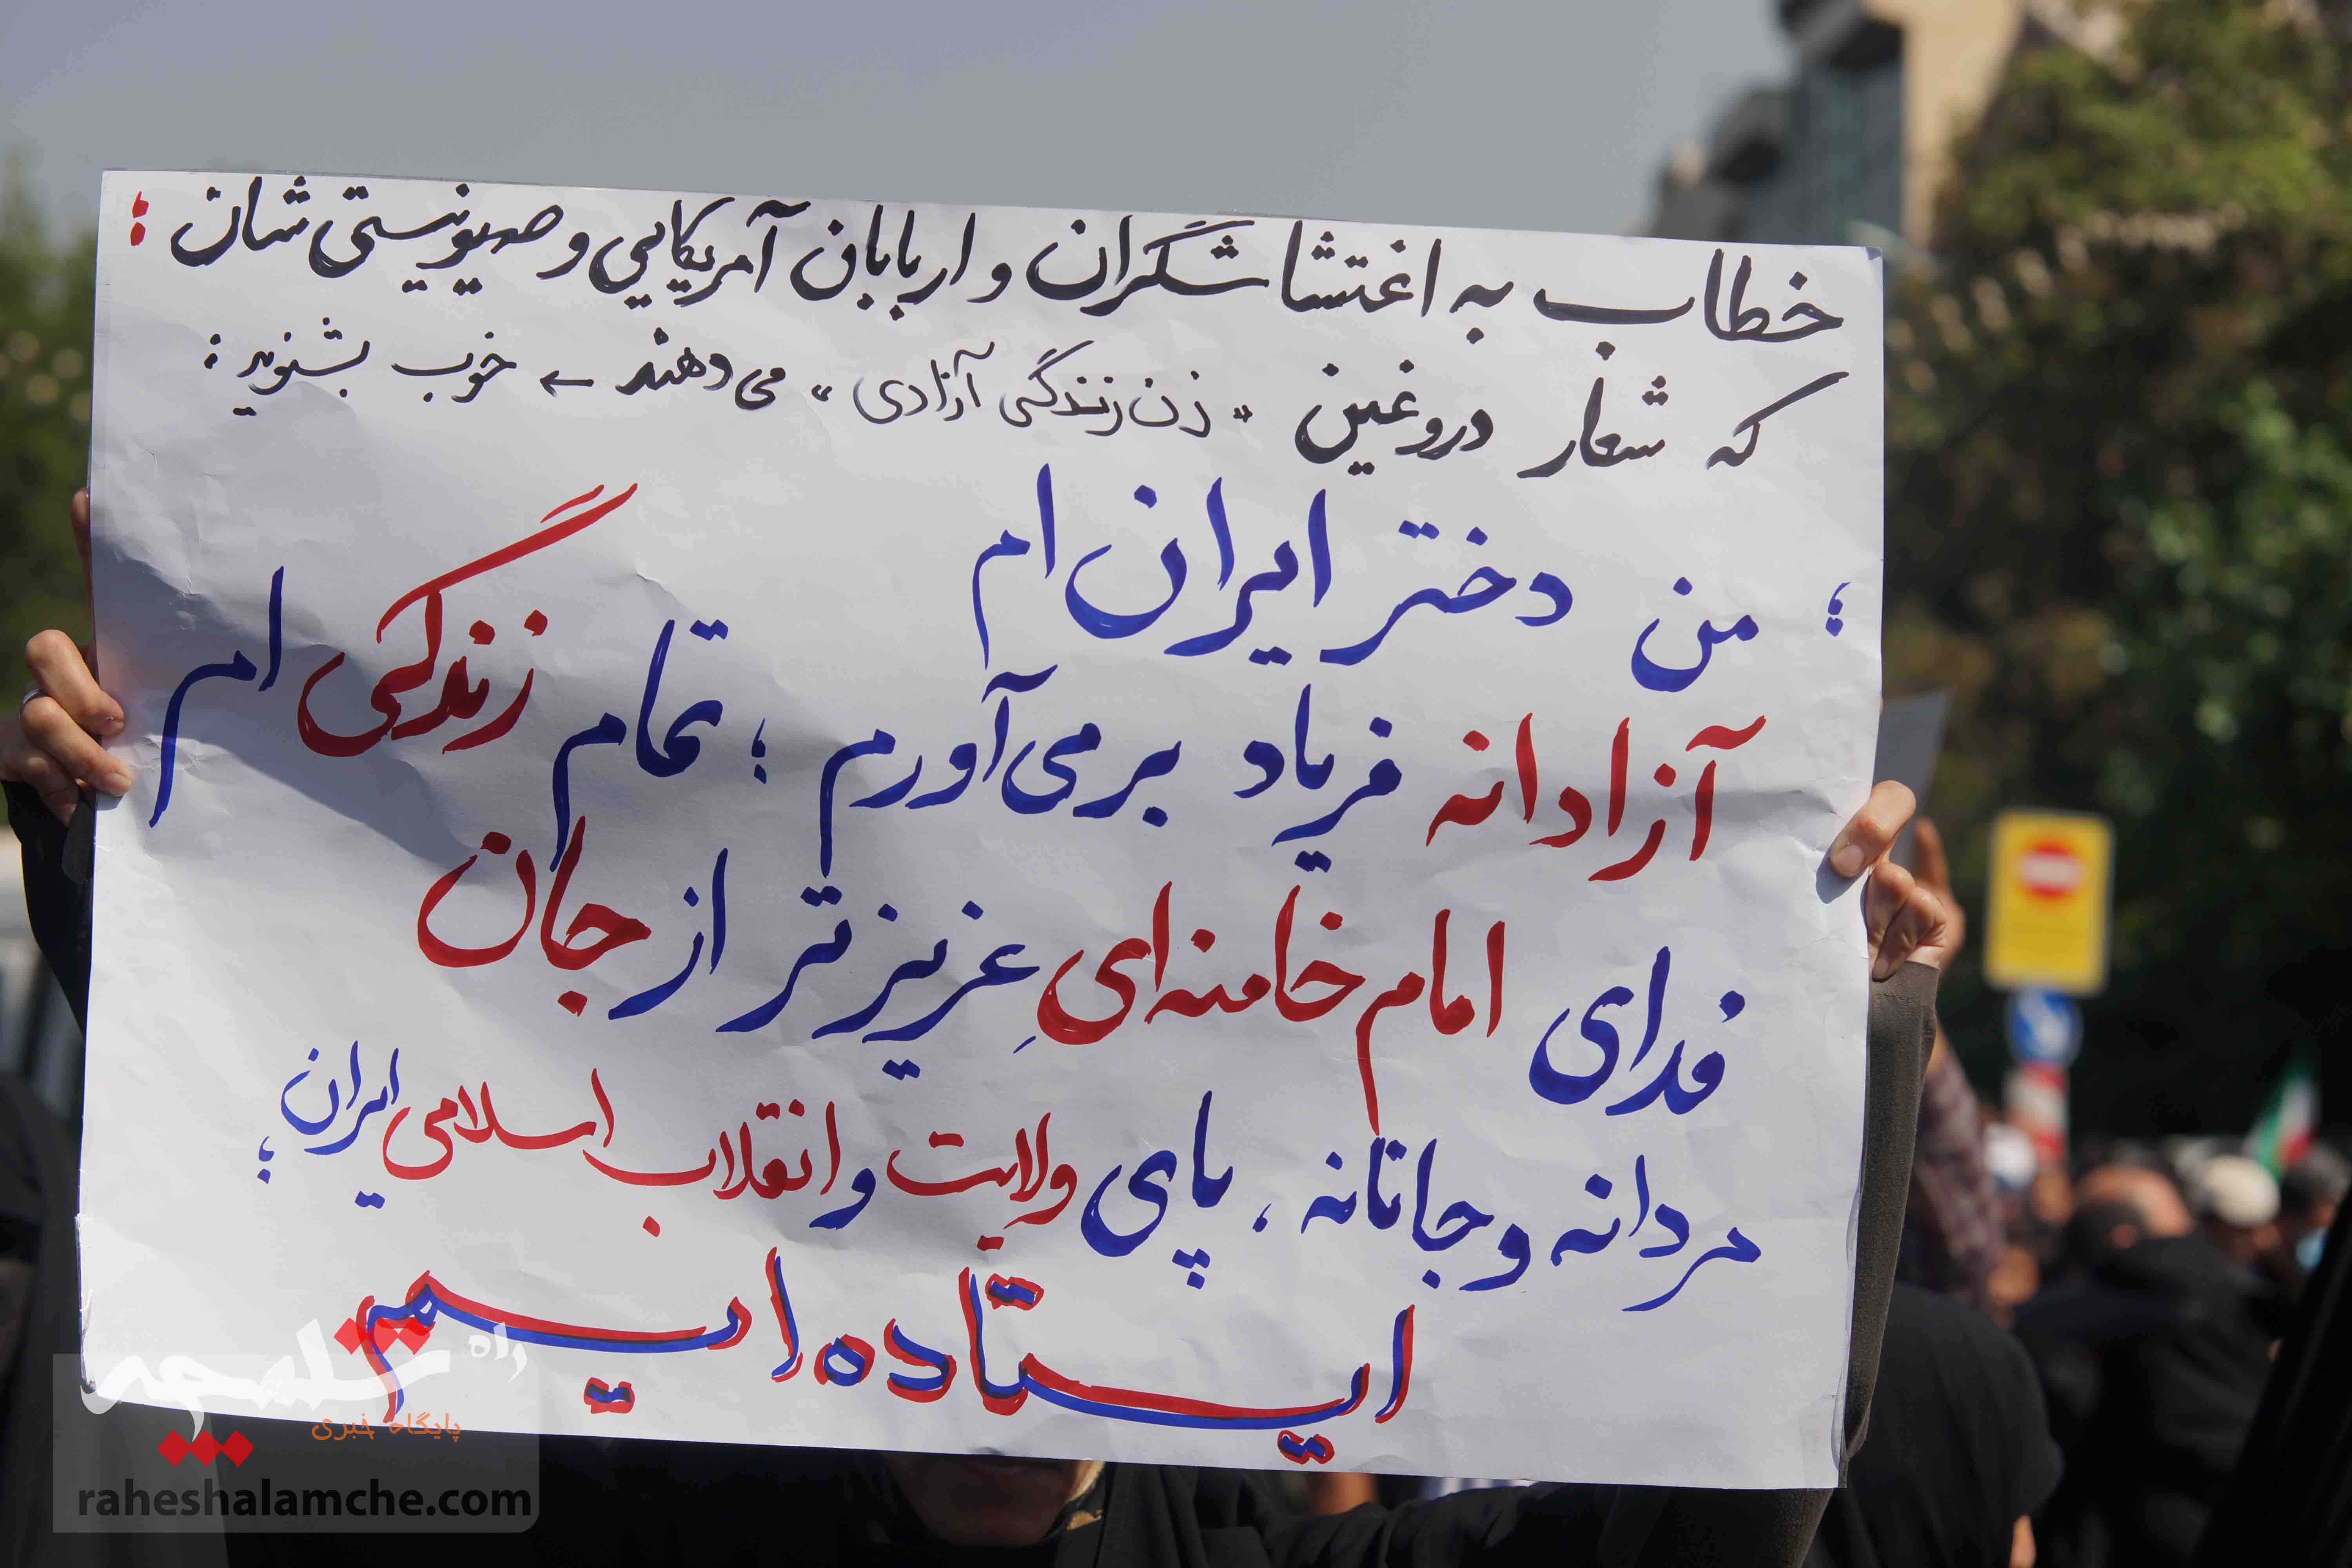 خطاب به اغتشاشگران و اربابان آمریکایی و صهیونیستی شان :
که شعار دروغین "زن زندگی آزادی" می دهند ← خوب بشنوید :
؛ من دختر ایران ام
آزادانه فریاد برمی‌آورم ؛ تمام زندگی ام
فدای امام خامنه‌ای عزیزتر از جان
مردانه و جانانه ، پای ولایت و انقلاب اسلامی ایران ؛
ایستاده ایم
راه شلمچه
پایگاه خبری
raheshalamche.com